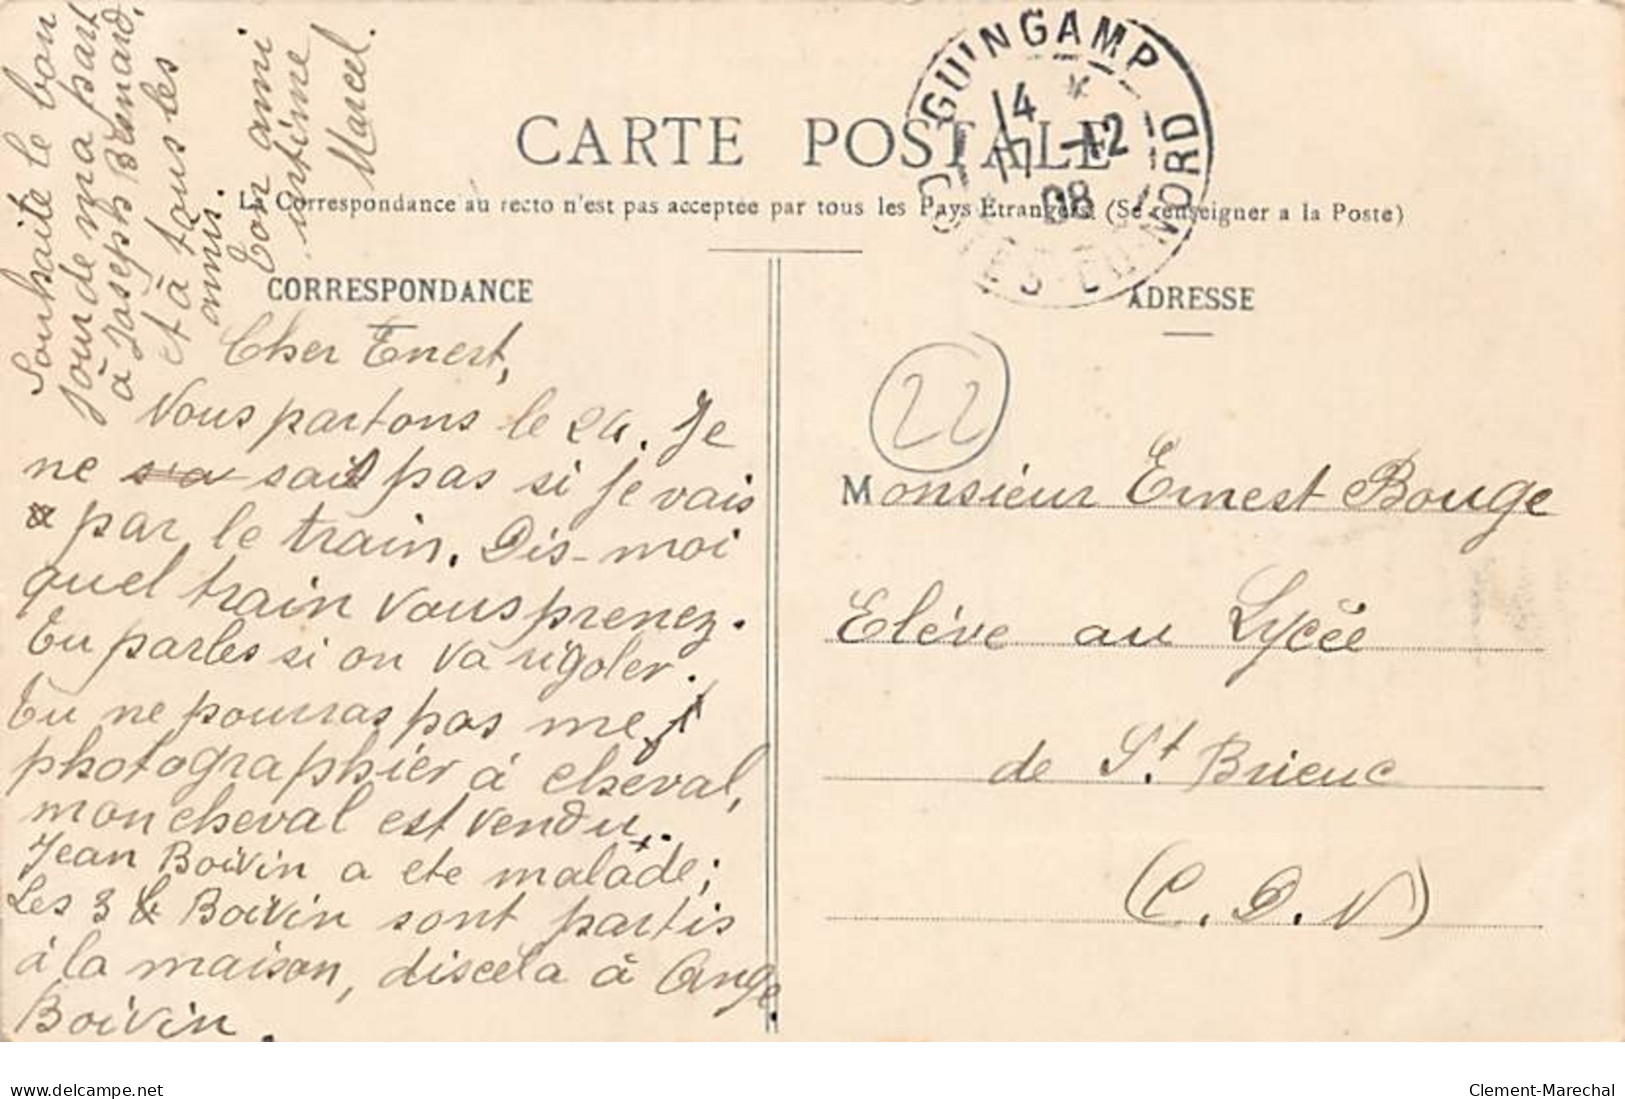 CARTE POSTALE
La Correspondance au recto n'est pas acceptée par tous les Pays Étrangers (Se renseigner a la Poste)
CORRESPONDANCE
ADRESSE
GUINGAMP
14
17 -12
08
COTES-DU-NORD
22
Cher Enert,
Nous partons le 24. Je
ne sais pas si je vais
par le train. Dis-moi
quel train vous prenez.
Tu parles si on va rigoler.
Tu ne pourras pas me
photographier à cheval,
mon cheval est vendu.
Jean Boivin a ete malade;
Les 3 Boivin sont partis
à la maison, discela à Ange
Boivin.
Souhaite le bon
jour de ma part
à Joseph Bernard,
et à tous les
amis.
Ton ami
intime
Marcel.
Monsieur Ernest Bouge
Elève au Lycée
de St Brieuc
(C. D. N)
www.delcampe.net
Clement-Marechal